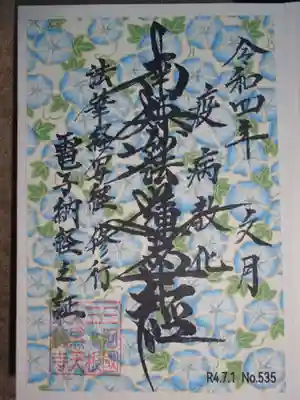 令和四年 文月
疫病教化
南無妙法蓮華経
法華経写経修行
電子納経之証
R4.7.1 No.535